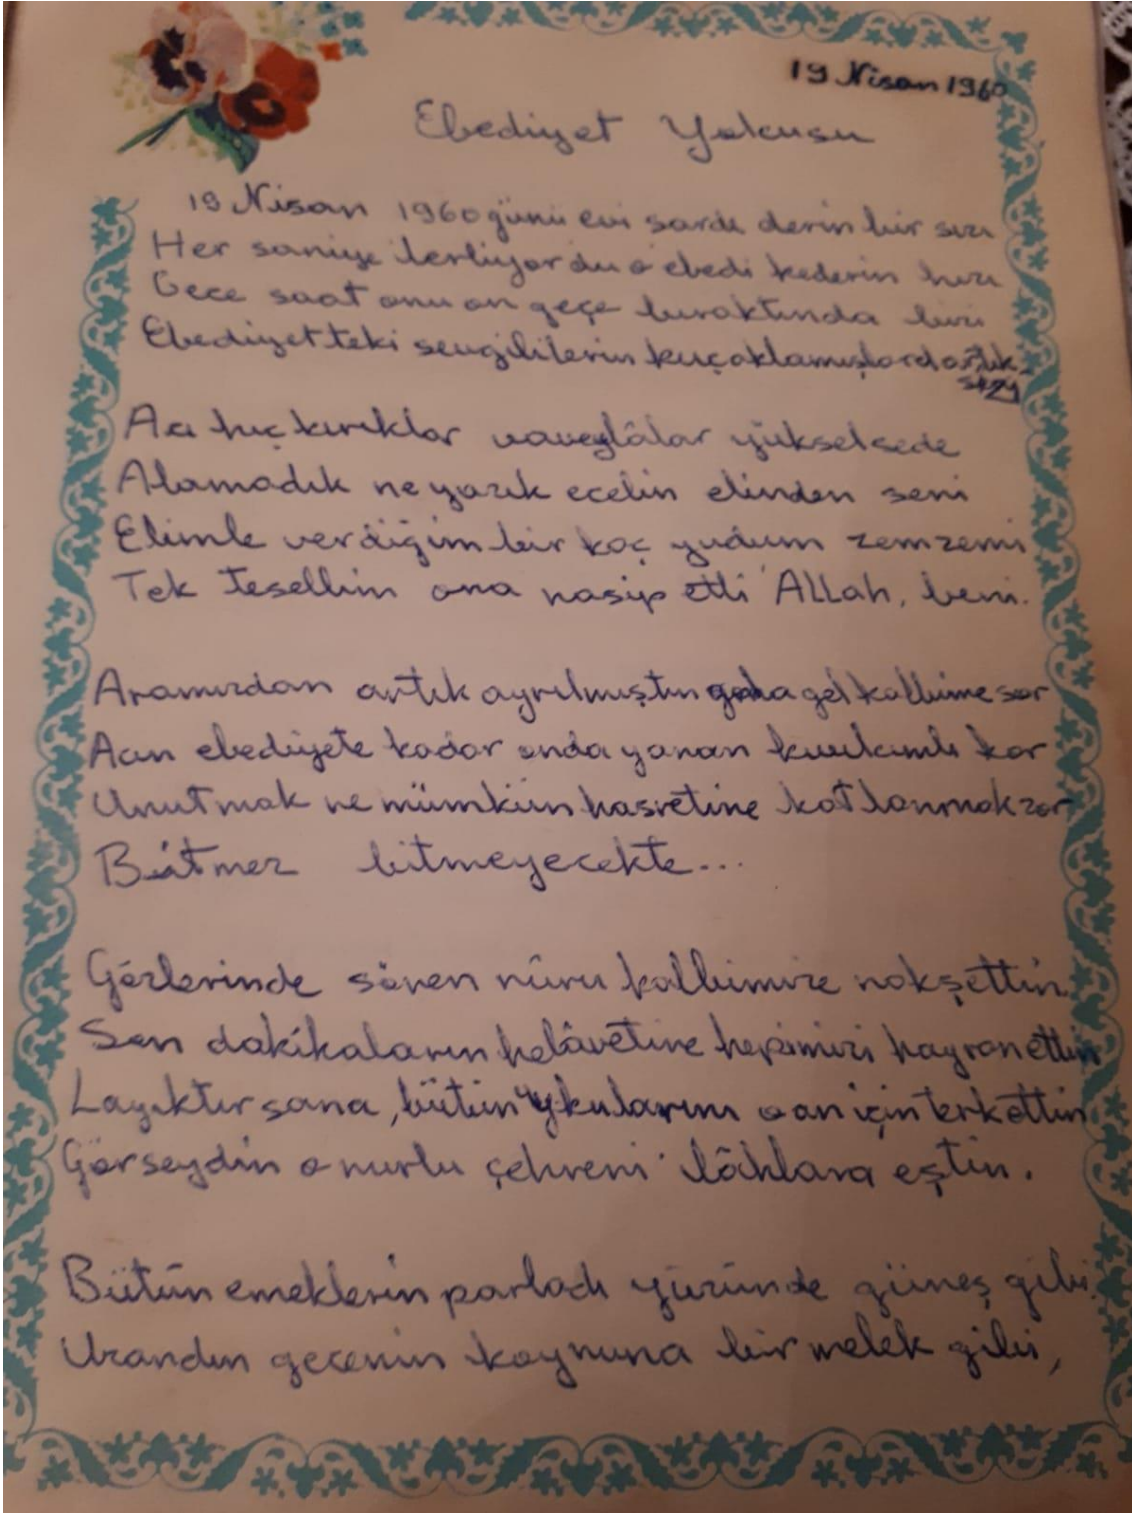 19 Nisan 1960
Ebediyet Yolcusu
19 Nisan 1960 günü evi sardı derin bir sızı
Her saniye ilerliyordu o ebedi kederin hızı
Gece saat onu on geçe bıraktında bizi
Ebediyetteki sevgililerin kucaklamışlardı artık
sizy
Acı hıçkırıklar vaveylâlar yükselsede
Alamadık ne yazık ecelin elinden seni
Elimle verdiğim bir kaç yudum zemzemi
Tek tesellim ona nasip etti ALLah, beni.
Aramızdan artık ayrılmıştın gel kalbime sor
Acın ebediyete kadar onda yanan kıvılcımlı kor
Unutmak ne mümkün hasretine katlanmak zor
Bitmez bitmeyecekte...
Gözlerinde sönen nûru kalbimize nakşettin
Son dakikaların helâvetine hepimizi hayran ettin
Layıktır sana, bütün uykularını o an için terkettin
Görseydin o nurlu çehreni ilâhlara eştin.
Bütün emeklerin parladı yüzünde güneş gibi
Uzandın gecenin koynuna bir melek gibi,